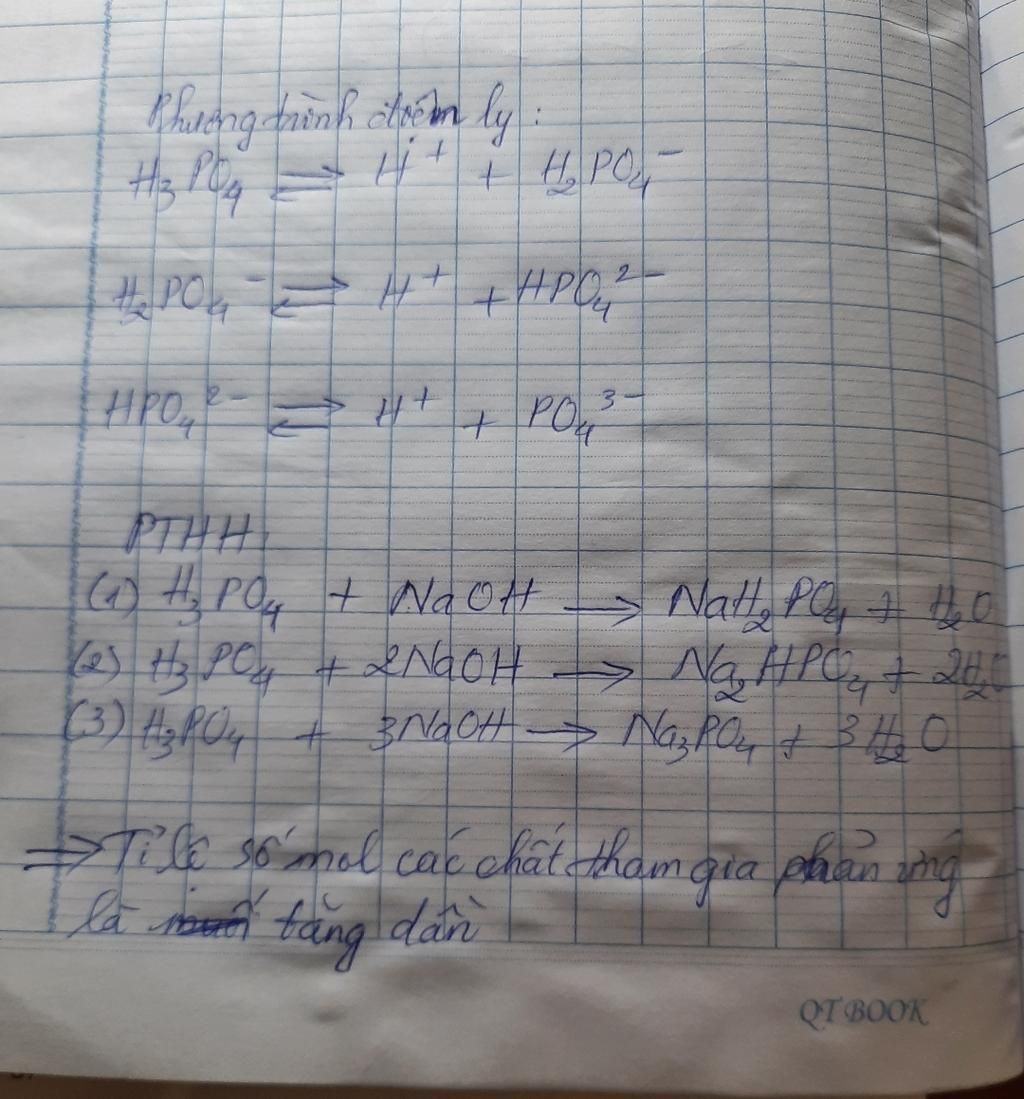 Phương trình điện ly :
H₃PO₄ ⇌ H⁺ + H₂PO₄⁻
H₂PO₄⁻ ⇌ H⁺ + HPO₄²⁻
HPO₄²⁻ ⇌ H⁺ + PO₄³⁻
PTHH:
(1) H₃PO₄ + NaOH → NaH₂PO₄ + H₂O
(2) H₃PO₄ + 2NaOH → Na₂HPO₄ + 2H₂O
(3) H₃PO₄ + 3NaOH → Na₃PO₄ + 3H₂O
⇒ Tỉ lệ số mol các chất tham gia phản ứng
là tăng dần
QT BOOK